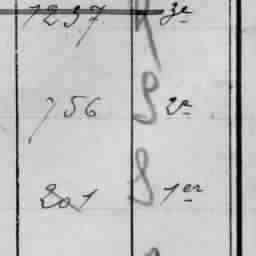 1237 3e
756 S 2e
201 S 1er